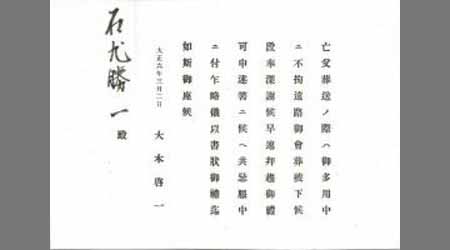 亡父葬送ノ際ハ御多用中
ニ不拘遠路御會葬被下候
段奉深謝候早速拜趨御禮
可申述筈ニ候ヘ共忌服中
ニ付乍略儀以書狀御禮迄
如斯御座候
大正六年三月二日
大木啓一
石尤勝一殿